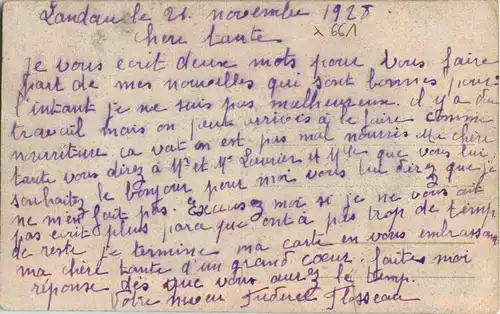 Landau le 21. novembre 1928.
chere tante
x 661
Je vous ecrit deux mots pour vous faire
part de mes nouvelles qui sont bonnes pour
l'intant je ne suis pas malheureux. il y a du
travail mais on peut arrivés à le faire comme
nourriture ca vat on est pas mal nourris Ma chère
tante vous direz à Mr et Me Laurier et Mlle que vous lui
souhaitez le bonjour pour moi vous lui direz que je
ne m'en fait pas. Excusez moi si je ne vous ait
pas ecrit plus paraque ont à pas trop de temp
de reste je termine ma carte en vous embrassan
ma chère tante d'un grand coeur. faites moi
réponse dès que vous aurez le temp.
Votre neveu